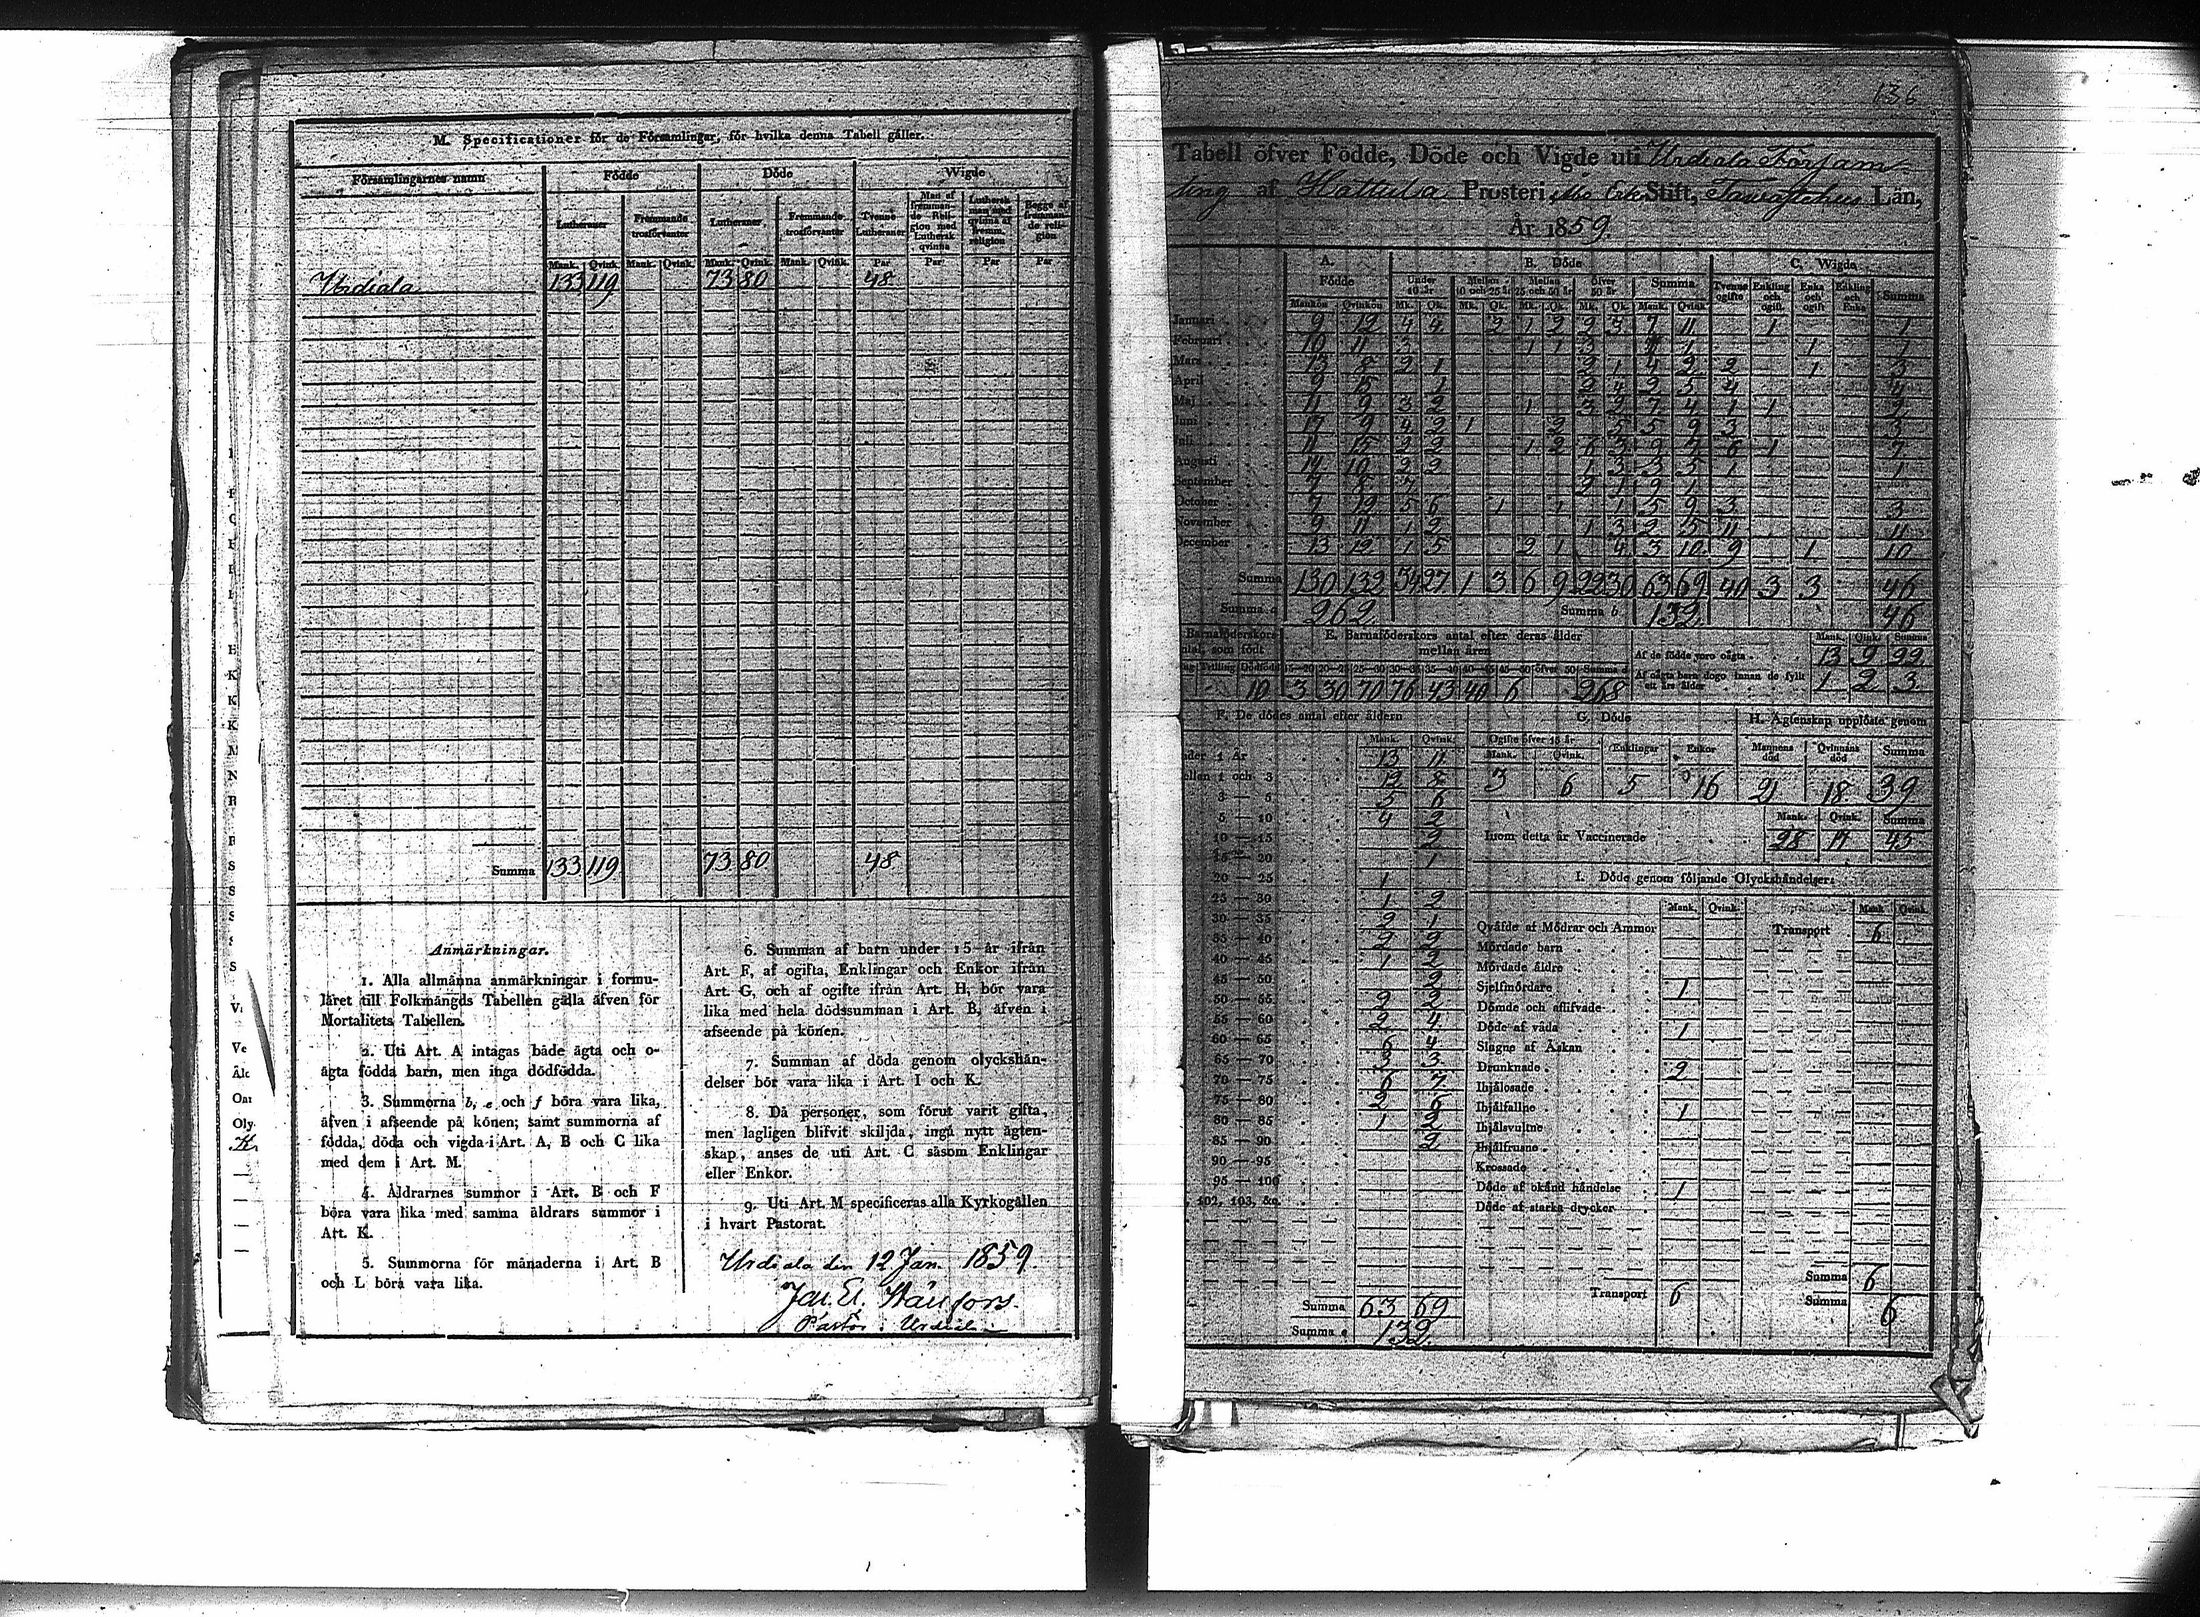 M. Specificationer för de Församlingar, för hvilka denna Tabell gäller.
Församlingarnes namn
Födde
Döde
Wigde
Lutheraner
Främmande trosförvanter
Lutheraner
Främmande trosförvanter
Tvenne Lutheraner
Man af främmande Religion med Luthersk qvinna
Luthersk man med qvinna af fremm. religion
Begge af främmande religion
Mank. Qvink. Mank. Qvink. Mank. Qvink. Mank. Qvink. Par Par Par Par
Urdiala 133 119 73 80 48
Summa 133 119 73 80 48
Anmärkningar.
1. Alla allmänna anmärkningar i formu-
läret till Folkmängds Tabellen gälla äfven för
Mortalitets Tabellen.
2. Uti Art. A intagas både ägta och o-
ägta födda barn, men inga dödfödda.
3. Summorna b, e och f böra vara lika,
äfven i afseende på könen; samt summorna af
födda, döda och vigda i Art. A, B och C lika
med dem i Art. M.
4. Åldrarnes summor i Art. B och F
böra vara lika med samma åldrars summor i
Art. K.
5. Summorna för månaderna i Art. B
och L böra vara lika.
6. Summan af barn under 15 år ifrån
Art. F, af ogifta, Enklingar och Enkor ifrån
Art. G, och af ogifte ifrån Art. H, bör vara
lika med hela dödssumman i Art. B, äfven i
afseende på könen.
7. Summan af döda genom olyckshän-
delser bör vara lika i Art. I och K.
8. Då personer, som förut varit gifta,
men lagligen blifvit skiljda, ingå nytt ägten-
skap, anses de uti Art. C såsom Enklingar
eller Enkor.
9. Uti Art. M specificeras alla Kyrkogällen
i hvart Pastorat.
Urdiala den 12 Jan. 1859.
Pastor i Urdiala
136
Tabell öfver Födde, Döde och Vigde uti Urdiala Försam-
ling af Hattula Prosteri, Åbo Erke Stift, Tawastehus Län,
År 1859.
A. Födde
B. Döde
C. Wigde
Under 10 år
Mellan 10 och 25 år
Mellan 25 och 50 år
öfver 50 år
Summa
Tvenne ogifte
Enkling och ogift
Enka och ogift
Enkling och Enka
Summa
Mankön Qvinkön Mk. Qk. Mk. Qk. Mk. Qk. Mk. Qk. Mank. Qvink.
Januari 9 12 4 4 2 1 2 2 3 7 11 1 1
Februari 10 11 3 1 1 3 7 1 1 1
Mars 13 8 2 1 2 1 4 2 2 1 3
April 9 15 1 2 4 2 5 4 4
Maj 11 9 3 2 1 3 2 7 4 1 1 2
Juni 17 9 4 2 1 2 5 5 9 3 3
Juli 11 15 2 2 1 2 6 3 9 7 6 1 7
Augusti 10 2 2 1 3 3 5 1 1
September 7 8 7 2 1 9 1
October 7 12 5 6 1 1 1 5 9 3 3
November 9 11 1 2 1 3 2 5 11 11
December 13 12 1 5 2 1 4 3 10 9 1 10
Summa 130 132 34 27 1 3 6 9 22 30 63 69 40 3 3 46
Summa a 262 Summa b 132 46
Barnaföderskors
ntal, som födt
Tvilling Dödfödt
10
E. Barnaföderskors antal efter deras ålder
mellan åren
15—20 20—25 25—30 30—35 35—40 40—45 45—50 öfver 50 Summa d
3 30 70 76 43 40 6 268
Mank. Qink. Summa
Af de födde voro oägta 13 9 22
Af oägta barn dogo innan de fyllt
ett års ålder 1 2 3
F. De dödes antal efter åldern
Mank. Qvink.
nder 1 År 13 11
ellan 1 och 3 12 8
3 — 5 5 6
5 — 10 4 2
10 — 15 2
15 — 20 1
20 — 25 1
25 — 30 1 2
30 — 35 2 1
35 — 40 2 2
40 — 45 1 2
45 — 50 2
50 — 55 2 2
55 — 60 2 4
60 — 65 5 4
65 — 70 3 3
70 — 75 6 7
75 — 80 2 6
80 — 85 1 2
85 — 90 2
90 — 95
95 — 100
102, 103, &c.
Summa 63 69
Summa e 132
G. Döde
Ogifte öfver 15 år
Mank. Qvink. Enklingar Enkor
3 6 5 16
H. Ägtenskap upplöste genom
Mannens död Qvinnans död Summa
21 18 39
Mank. Qvink. Summa
Inom detta år Vaccinerade 28 17 45
I. Döde genom följande Olyckshändelser:
Mank. Qvink. Mank. Qvink.
Qväfde af Mödrar och Ammor
Mördade barn
Mördade äldre
Sjelfmördare 1
Dömde och aflifvade
Döde af våda 1
Slagne af Åskan
Drunknade 2
Ihjälosade
Ihjälfallne 1
Ihjälsvultne
Ihjälfrusne
Krossade
Döde af okänd händelse 1
Döde af starka drycker
Transport 6
Transport 6
Summa 6
Summa 6